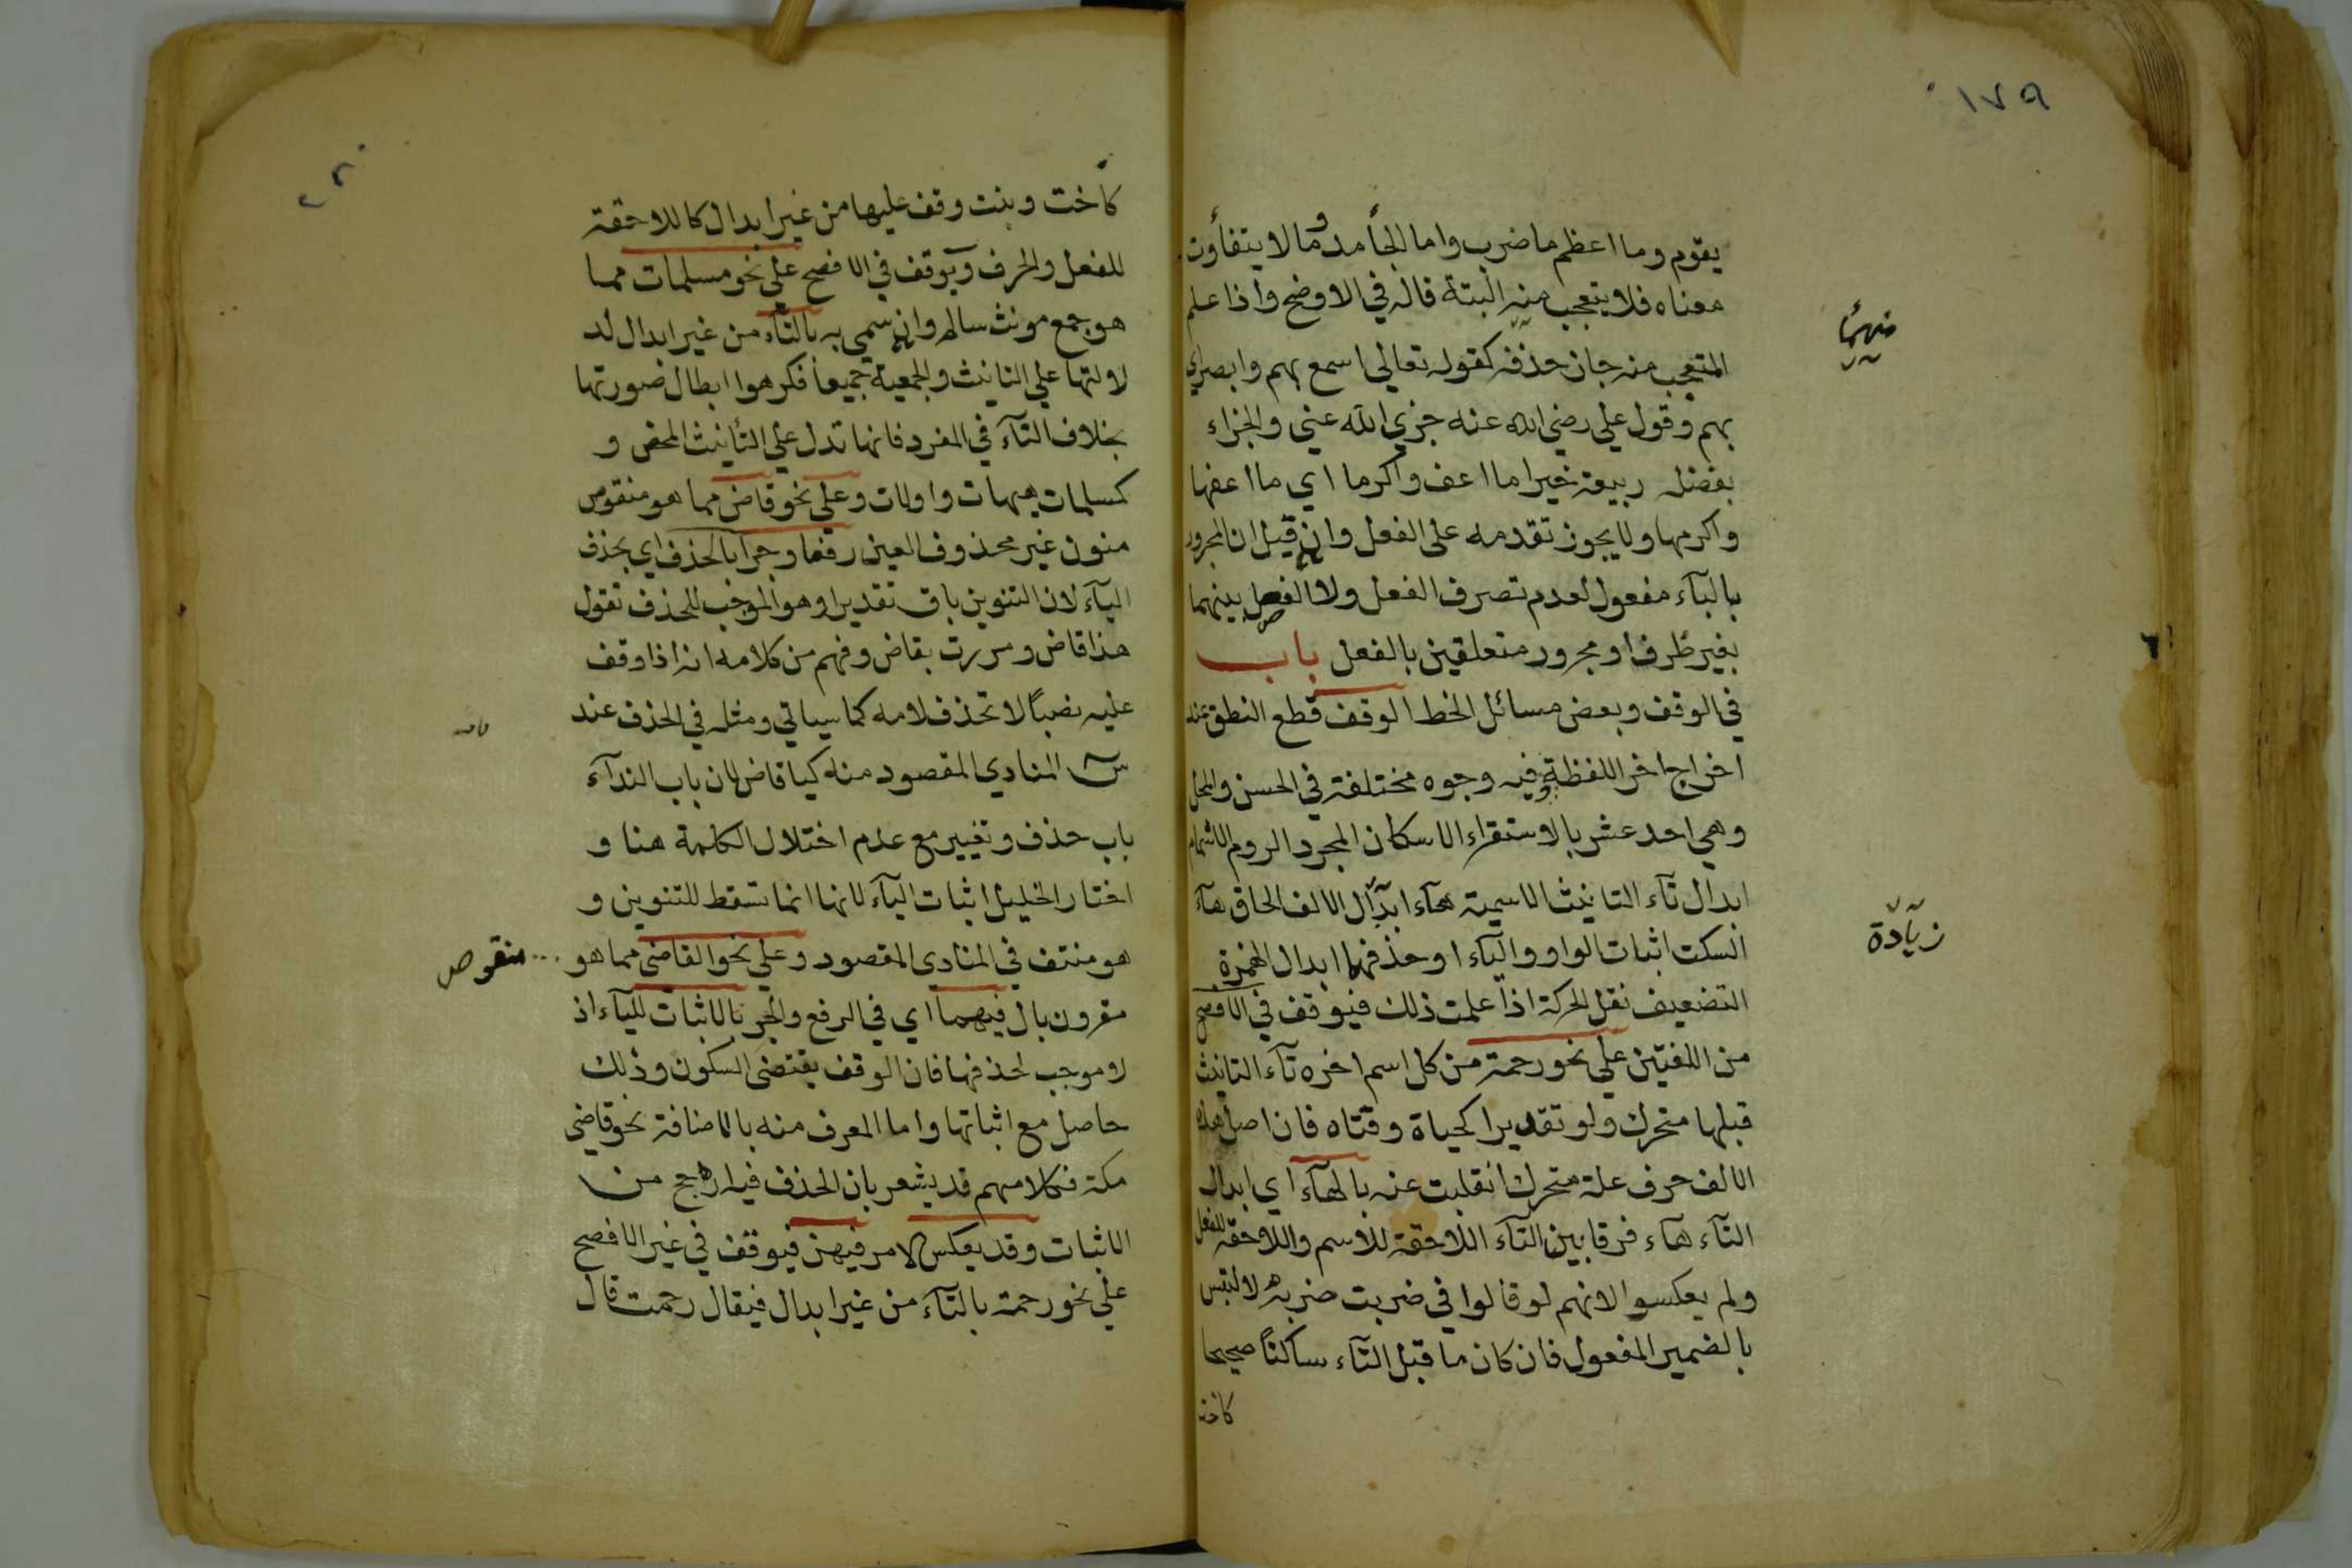 ١٧٩
يقوم وما اعظم ما ضرب واما الجأمد وما لا يتفأوت
معناه فلا يتعجب منه البتة قاله في الاوضح واذا علم
المتعجب منه جاز حذفه كقوله تعالي اسمع بهم وابصر اي
بهم وقول علي رضي الله عنه جزي الله عني والجزاء
بفضله ربيعة خيرا ما اعف واكرما اي ما اعفها
واكرمها ولا يجوز تقدمه على الفعل وان قيل ان المجرور
بالبآء مفعول لعدم تصرف الفعل ولا الفصل بينهما
بغير ظرف او مجرور متعلقين بالفعل باب
في الوقف وبعض مسائل الخط الوقف قطع النطق عند
اخراج اخر اللفظة وفيه وجوه مختلفة في الحسن والمحل
وهي احد عشر بالاستقراء الاسكان المجرد الروم الاشمام
ابدال تآء التانيث الاسمية هآء ابدال الالف الحاق هآء
زيادة
السكت اثبات الواو واليآء او حذفهما ابدال الهمزة
التضعيف نقل الحركة اذا علمت ذلك فيوقف في الافصح
من اللغتين علي نحو رحمة من كل اسم اخره تآء التانيث
قبلها متحرك ولو تقديرا كحياة وفتاه فان اصل هذه
الالف حرف علة متحرك انقلبت عنه بالهآء اي ابدال
التآء هآء فرقا بين التآء اللاحقة للاسم واللاحقة للفعل
ولم يعكسوا لانهم لو قالوا في ضربت ضربه لا لتبس
بالضمير المفعول فان كان ما قبل التآء ساكنا صحيحا
كاخت
كأخت وبنت وقف عليها من غير ابدال كاللاحقة
للفعل والحرف ويوقف في الافصح علي نحو مسلمات مما
هو جمع مونث سالم وان سمي به بالتآء من غير ابدال لد
لا لتها علي التانيث والجمعية جميعا فكرهوا ابطال صورتها
بخلاف التآء في المفرد فانها تدل علي التأنيث المحض و
كمسلمات هيهات واولات وعلي نحو قاض مما هو منقوص
منون غير محذوف العين رفعا وجرا بالحذف اي بحذف
اليآء لان التنوين باق تقديرا وهو الموجب للحذف تقول
هذا قاض ومررت بقاض وفهم من كلامه انه اذا وقف
عليه نصباً لا تحذف لامه كما سياتي ومثله في الحذف عند
س المنادي المقصود منه كيا قاض لان باب الندآء
باب حذف وتغيير مع عدم اختلال الكلمة هنا و
اختار الخليل اثبات اليآء لانها انما تسقط للتنوين و
هو منتف في المنادى المقصود وعلي نحو القاضي مما هو ... منقوص
مقرون بال فيهما اي في الرفع والجر بالاثبات لليآء اذ
لا موجب لحذفها فان الوقف يقتضى السكون وذلك
حاصل مع اثباتها واما المعرف منه بالاضافة نحو قاضي
مكة فكلامهم قد يشعر بان الحذف فيه ارجح من
الاثبات وقد يعكس الامر فيهن فيوقف في غير الافصح
علي نحو رحمة بالتآء من غير ابدال فيقال رحمت قال